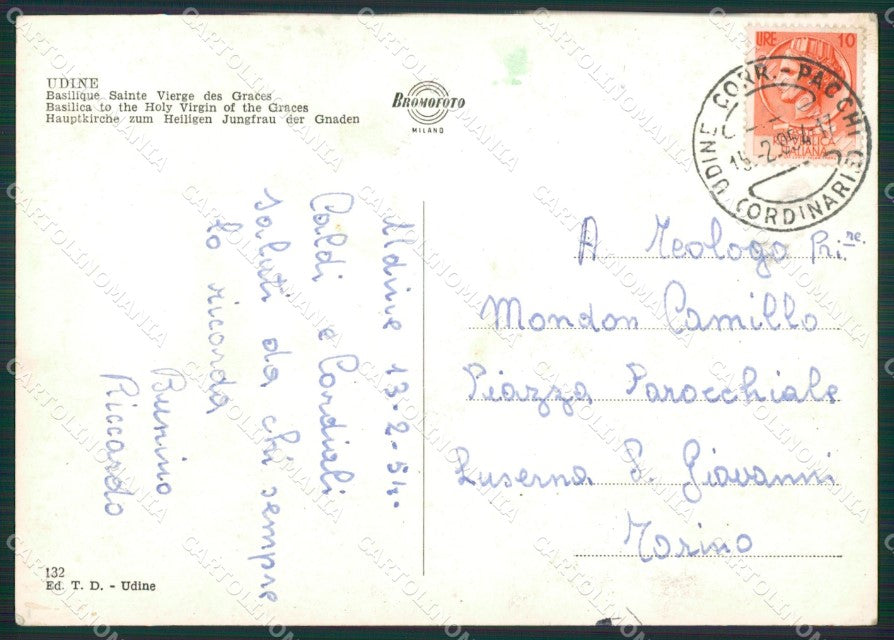 UDINE
Basilique Sainte Vierge des Graces
Basilica to the Holy Virgin of the Graces
Hauptkirche zum Heiligen Jungfrau der Gnaden
BROMOFOTO
MILANO
LIRE 10
UDINE CORR. - PACCHI
(ORDINARIE)
Udine 13-2-54.
Caldi e Cordiali
saluti da chi sempre
lo ricorda
Bunino
Riccardo
A Teologo Pri.re
Mondon Camillo
Piazza Parocchiale
Luserna S. Giovanni
Torino
132
Ed. T. D. - Udine
CARTOLINOMANIA